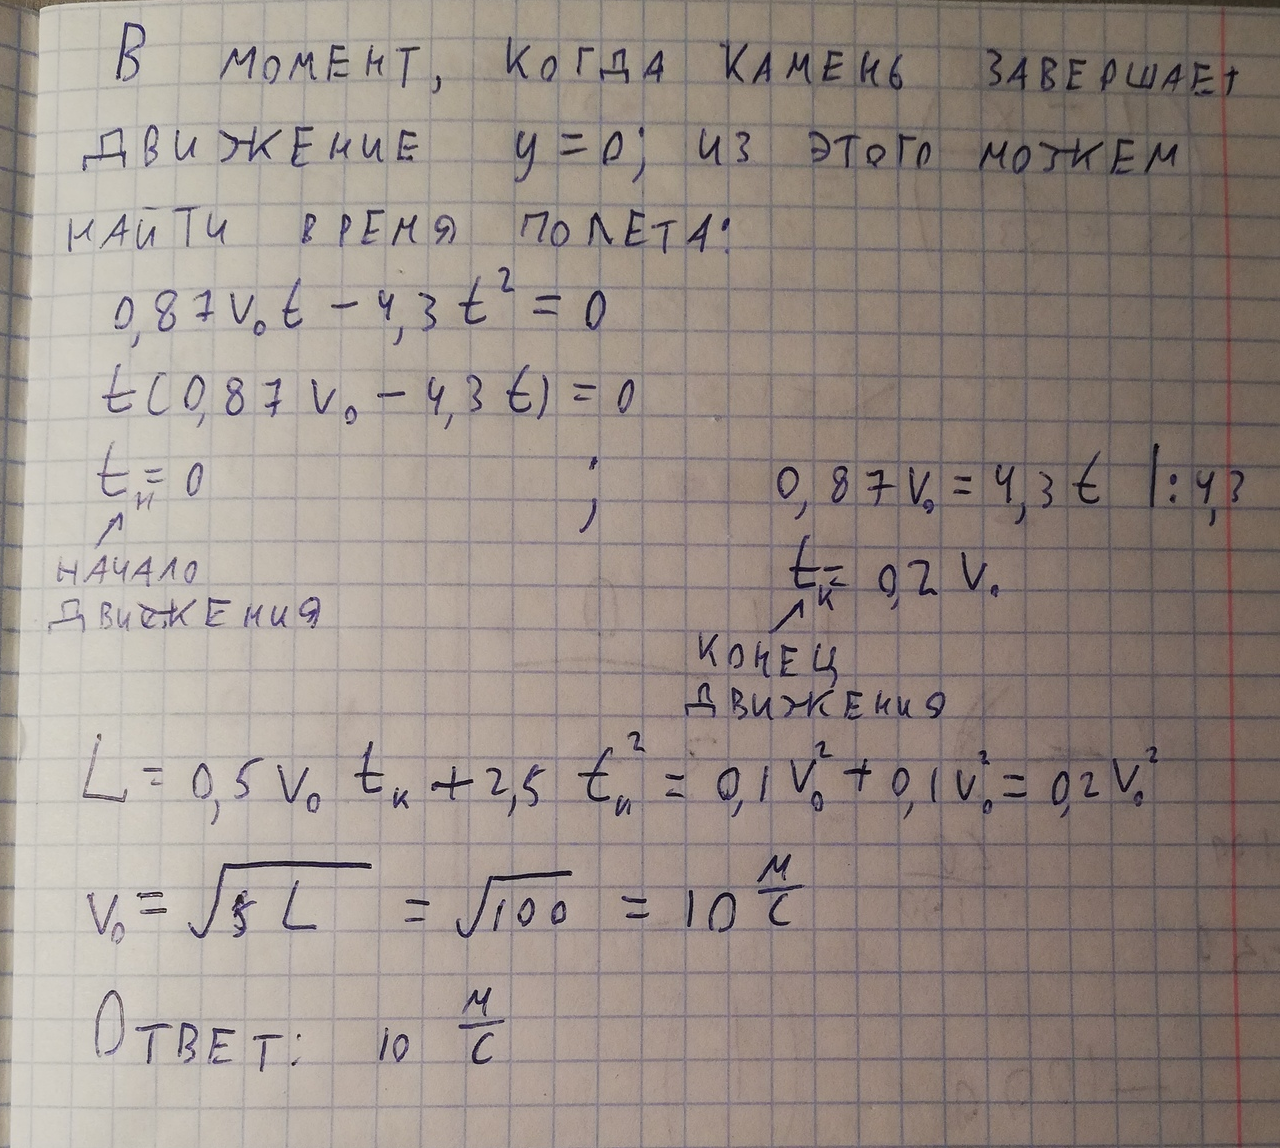 В МОМЕНТ, КОГДА КАМЕНЬ ЗАВЕРШАЕТ
ДВИЖЕНИЕ y = 0; ИЗ ЭТОГО МОЖЕМ
НАЙТИ ВРЕМЯ ПОЛЕТА:
0,87 v₀ t − 4,3 t² = 0
t(0,87 v₀ − 4,3 t) = 0
tн = 0 ; 0,87 v₀ = 4,3 t |: 4,3
НАЧАЛО ДВИЖЕНИЯ
tк = 0,2 v₀
КОНЕЦ
ДВИЖЕНИЯ
L = 0,5 v₀ tк + 2,5 tк² = 0,1 v₀² + 0,1 v₀² = 0,2 v₀²
v₀ = √5 L = √100 = 10 м/с
ОТВЕТ: 10 м/с